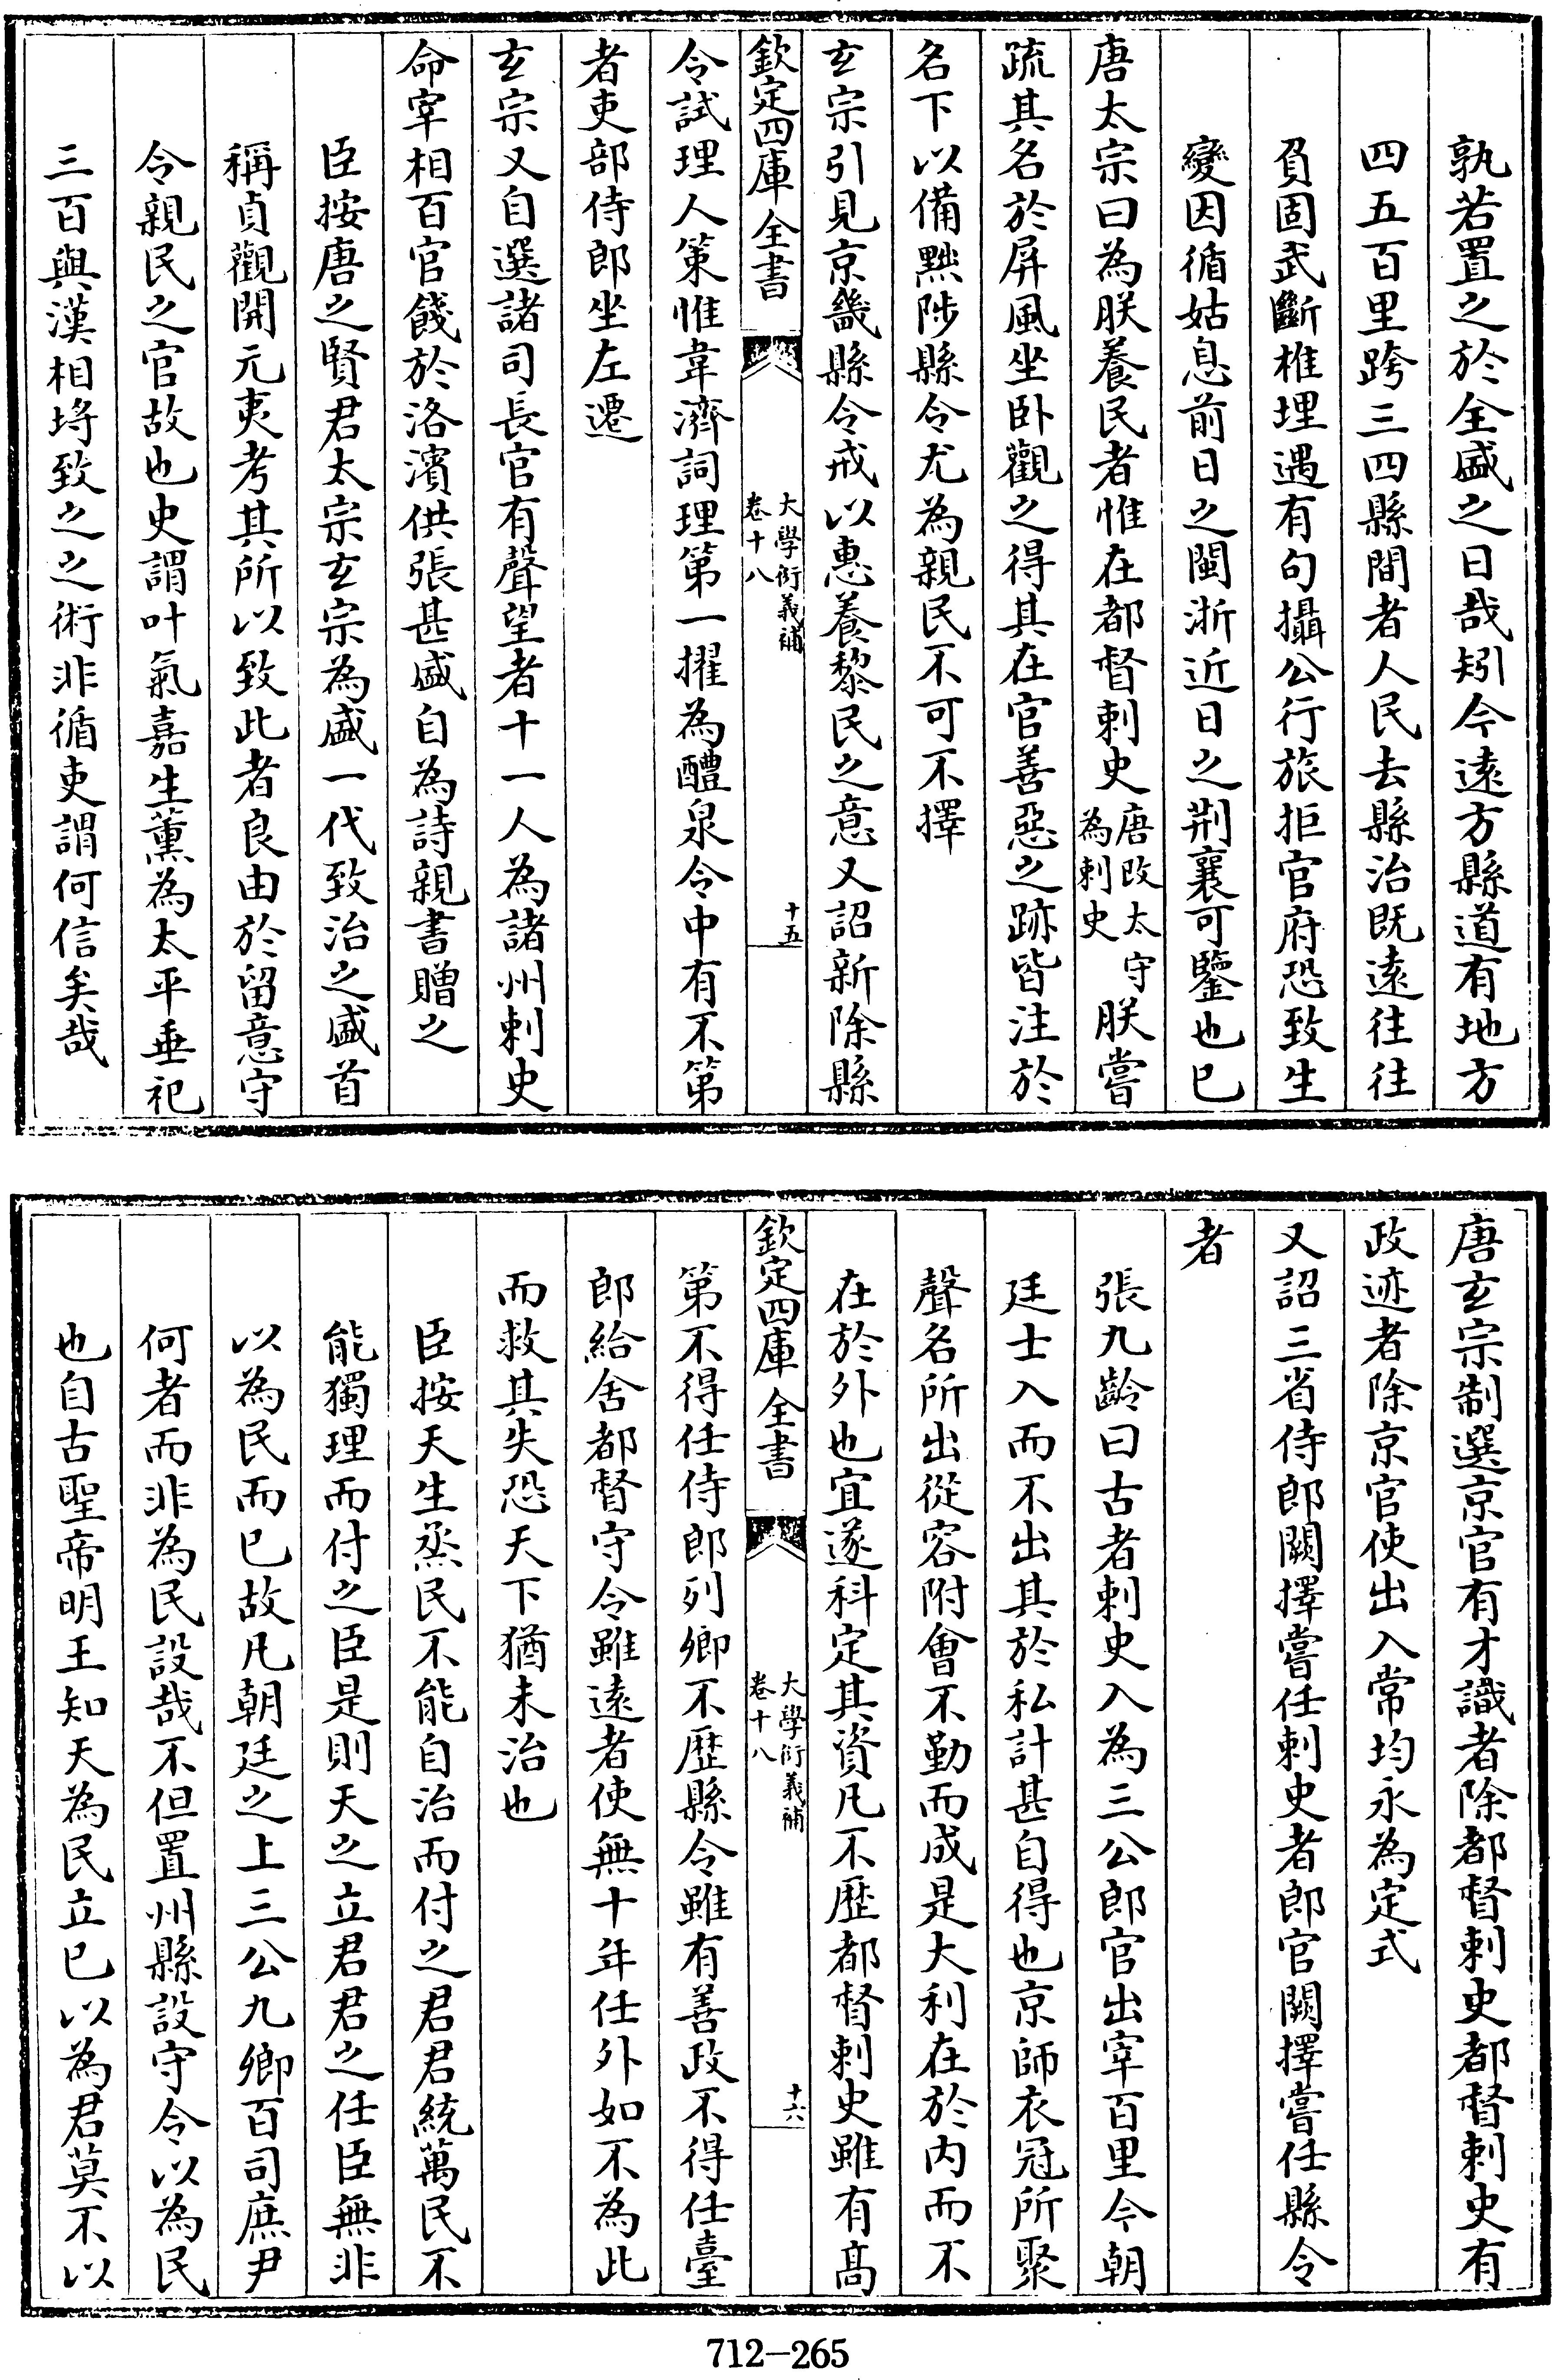 孰若置之於全盛之日哉矧今遠方縣道有地方
四五百里跨三四縣間者人民去縣治既遠往往
負固武斷椎埋遇有句攝公行旅拒官府恐致生
變因循姑息前日之閩浙近日之荆襄可鑒也已
唐太宗曰為朕養民者惟在都督刺史唐改太守為刺史朕嘗
疏其名於屏風坐卧觀之得其在官善惡之跡皆注於
名下以備黜陟縣令尤為親民不可不擇
玄宗引見京畿縣令戒以惠養黎民之意又詔新除縣
欽定四庫全書 大學衍義補 卷十八 十五
令試理人策惟韋濟詞理第一擢為醴泉令中有不第
者吏部侍郎坐左遷
玄宗又自選諸司長官有聲望者十一人為諸州刺史
命宰相百官餞於洛濱供張甚盛自為詩親書贈之
臣按唐之賢君太宗玄宗為盛一代致治之盛首
稱貞觀開元夷考其所以致此者良由於留意守
令親民之官故也史謂叶氣嘉生薰為太平垂祀
三百與漢相埒致之之術非循吏謂何信矣哉
唐玄宗制選京官有才識者除都督刺史都督刺史有
政迹者除京官使出入常均永為定式
又詔三省侍郎闕擇嘗任刺史者郎官闕擇嘗任縣令
者
張九齡曰古者刺史入為三公郎官出宰百里今朝
廷士入而不出其於私計甚自得也京師衣冠所聚
聲名所出從容附會不勤而成是大利在於内而不
在於外也宜遂科定其資凡不歴都督刺史雖有髙
欽定四庫全書 大學衍義補 卷十八 十六
第不得任侍郎列卿不歴縣令雖有善政不得任臺
郎給舍都督守令雖遠者使無十年任外如不為此
而救其失恐天下猶未治也
臣按天生烝民不能自治而付之君君統萬民不
能獨理而付之臣是則天之立君君之任臣無非
以為民而已故凡朝廷之上三公九卿百司庶尹
何者而非為民設哉不但置州縣設守令以為民
也自古聖帝明王知天為民立已以為君莫不以
712-265